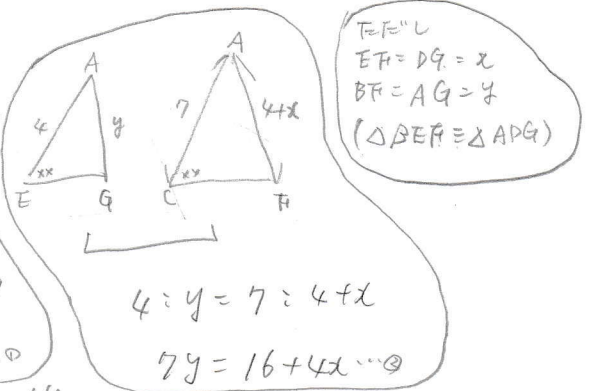 A
4
y
××
E
G
A
7
4+x
××
C
F
4:y=7:4+x
7y=16+4x…②
ただし
EF=DG=x
BF=AG=y
(△BEF≡△ADG)
①